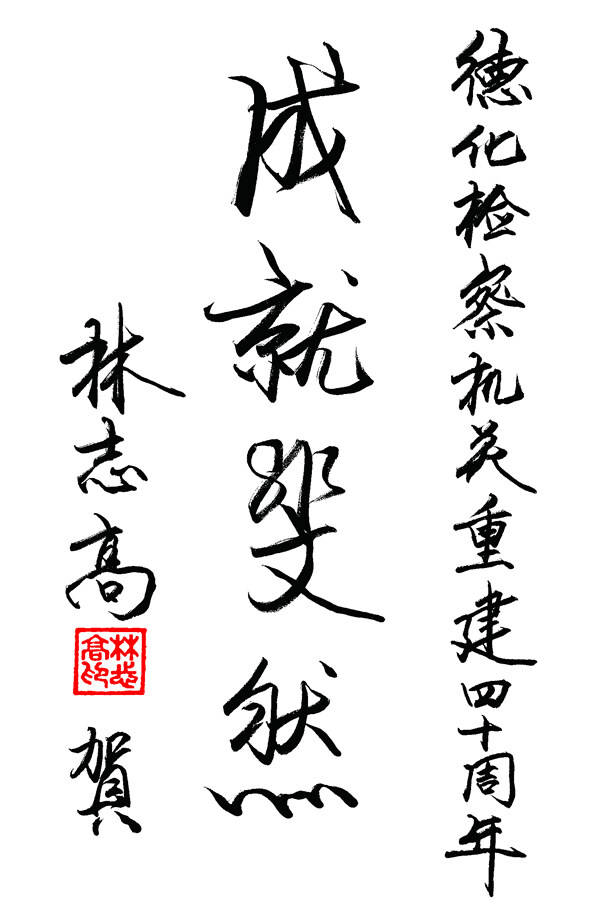 德化检察机关重建四十周年
成就斐然
林志高
林志高印
贺